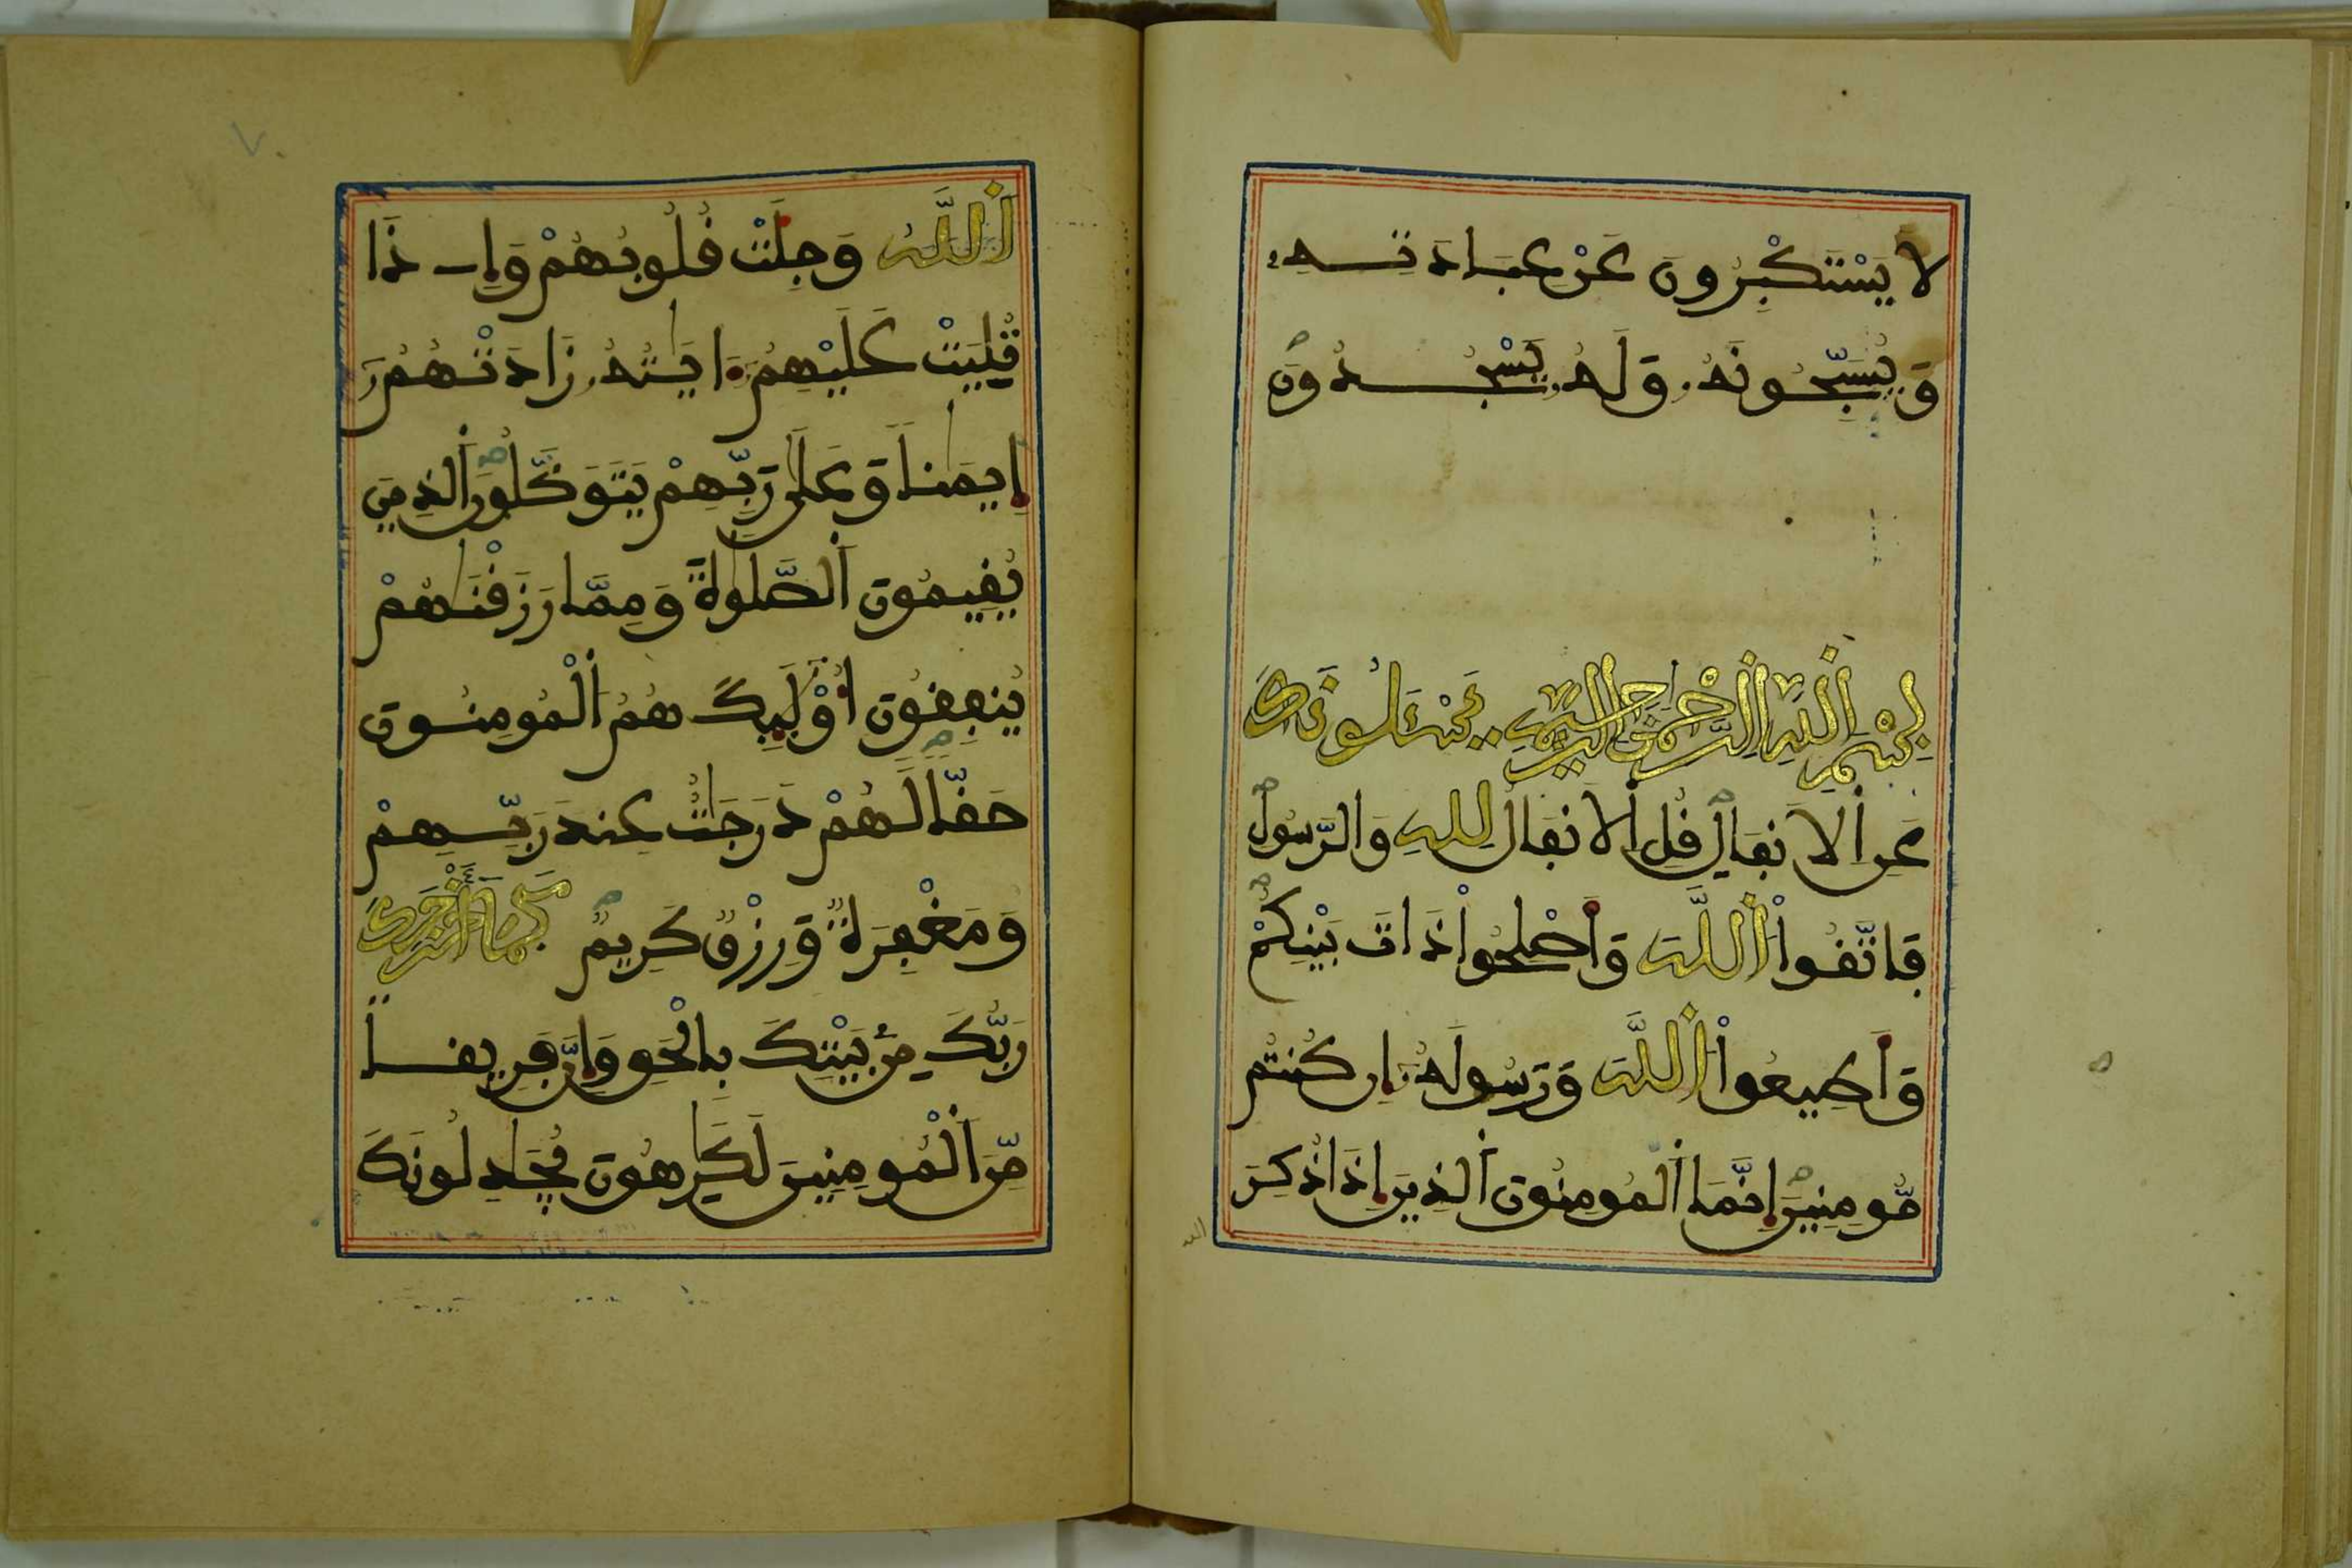 لَا يَسْتَكْبِرُونَ عَنْ عِبَادَتِهِ
وَيُسَبِّحُونَهُ وَلَهُ يَسْجُدُونَ
بِسْمِ اللَّهِ الرَّحْمَٰنِ الرَّحِيمِ يَسْـَٔلُونَكَ
عَنِ الَانفَالِ قُلِ الَانفَالُ لِلهِ وَالرَّسُولِ
فَاتَّقُوا اللَّهَ وَأَصْلِحُوا ذَاتَ بَيْنِكُمْ
وَأَطِيعُوا اللَّهَ وَرَسُولَهُ إِن كُنتُم
مُّومِنِينَ إِنَّمَا الْمُومِنُونَ الَّذِينَ إِذَا ذُكِرَ
الله
اللَّهُ وَجِلَتْ قُلُوبُهُمْ وَإِذَا
تُلِيَتْ عَلَيْهِمُ ءَايَٰتُهُ زَادَتْهُمُ
إِيمَٰنًا وَعَلَىٰ رَبِّهِمْ يَتَوَكَّلُونَ الَّذِينَ
يُقِيمُونَ الصَّلَوٰةَ وَمِمَّا رَزَقْنَٰهُمْ
يُنفِقُونَ أُوْلَٰئِكَ هُمُ الْمُومِنُونَ
حَقًّا لَّهُمْ دَرَجَٰتٌ عِندَ رَبِّهِمْ
وَمَغْفِرَةٌ وَرِزْقٌ كَرِيمٌ كَمَا أَخْرَجَكَ
رَبُّكَ مِنۢ بَيْتِكَ بِالْحَقِّ وَإِنَّ فَرِيقًا
مِّنَ الْمُومِنِينَ لَكَٰرِهُونَ يُجَٰدِلُونَكَ